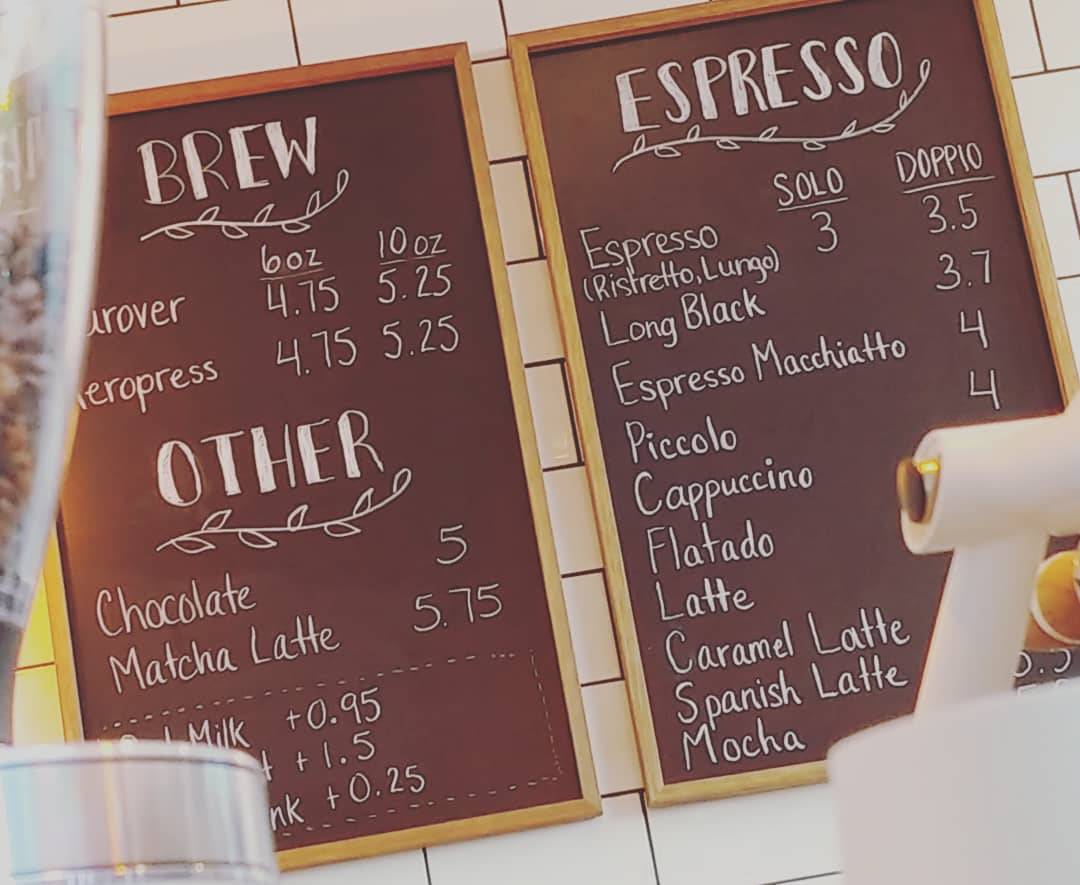 BREW
6oz 10oz
urover 4.75 5.25
eropress 4.75 5.25
OTHER
Chocolate 5
Matcha Latte 5.75
Milk +0.95
+1.5
nk +0.25
ESPRESSO
SOLO DOPPIO
Espresso 3 3.5
(Ristretto, Lungo)
Long Black 3.7
Espresso Macchiatto 4
Piccolo 4
Cappuccino
Flatado
Latte
Caramel Latte
Spanish Latte
Mocha